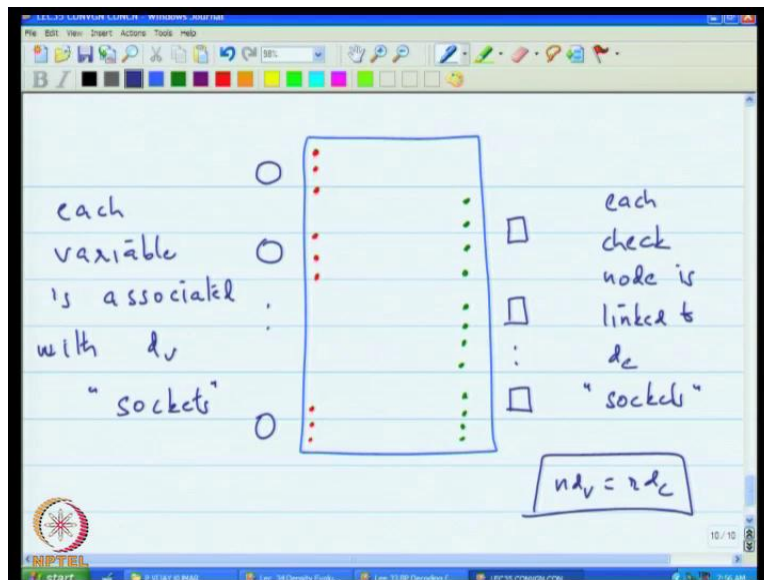 LEC35 CONVGN CONCN - Windows Journal
File Edit View Insert Actions Tools Help
98%
B I
each
variable
is associated
with dv
"sockets"
each
check
node is
linked to
dc
"sockets"
ndv = rdc
10 / 10
NPTEL
start
P VIJAY KUMAR
Lec_34 Density Evolu...
Lec 33 BP Decoding (...
LEC35 CONVGN CON...
7:56 AM